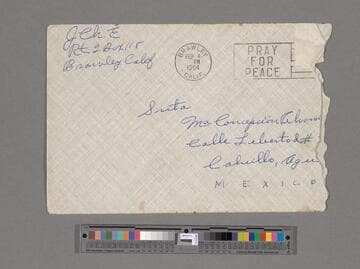 J Ch. E
Rt. 2 Box 115
Brawley Calif
BRAWLEY
FEB 4
PM
1964
CALIF.
PRAY
FOR
PEACE
Srita
Ma Concepcion
Calle Libertad #
Cahuillo, Agu
MEXICO